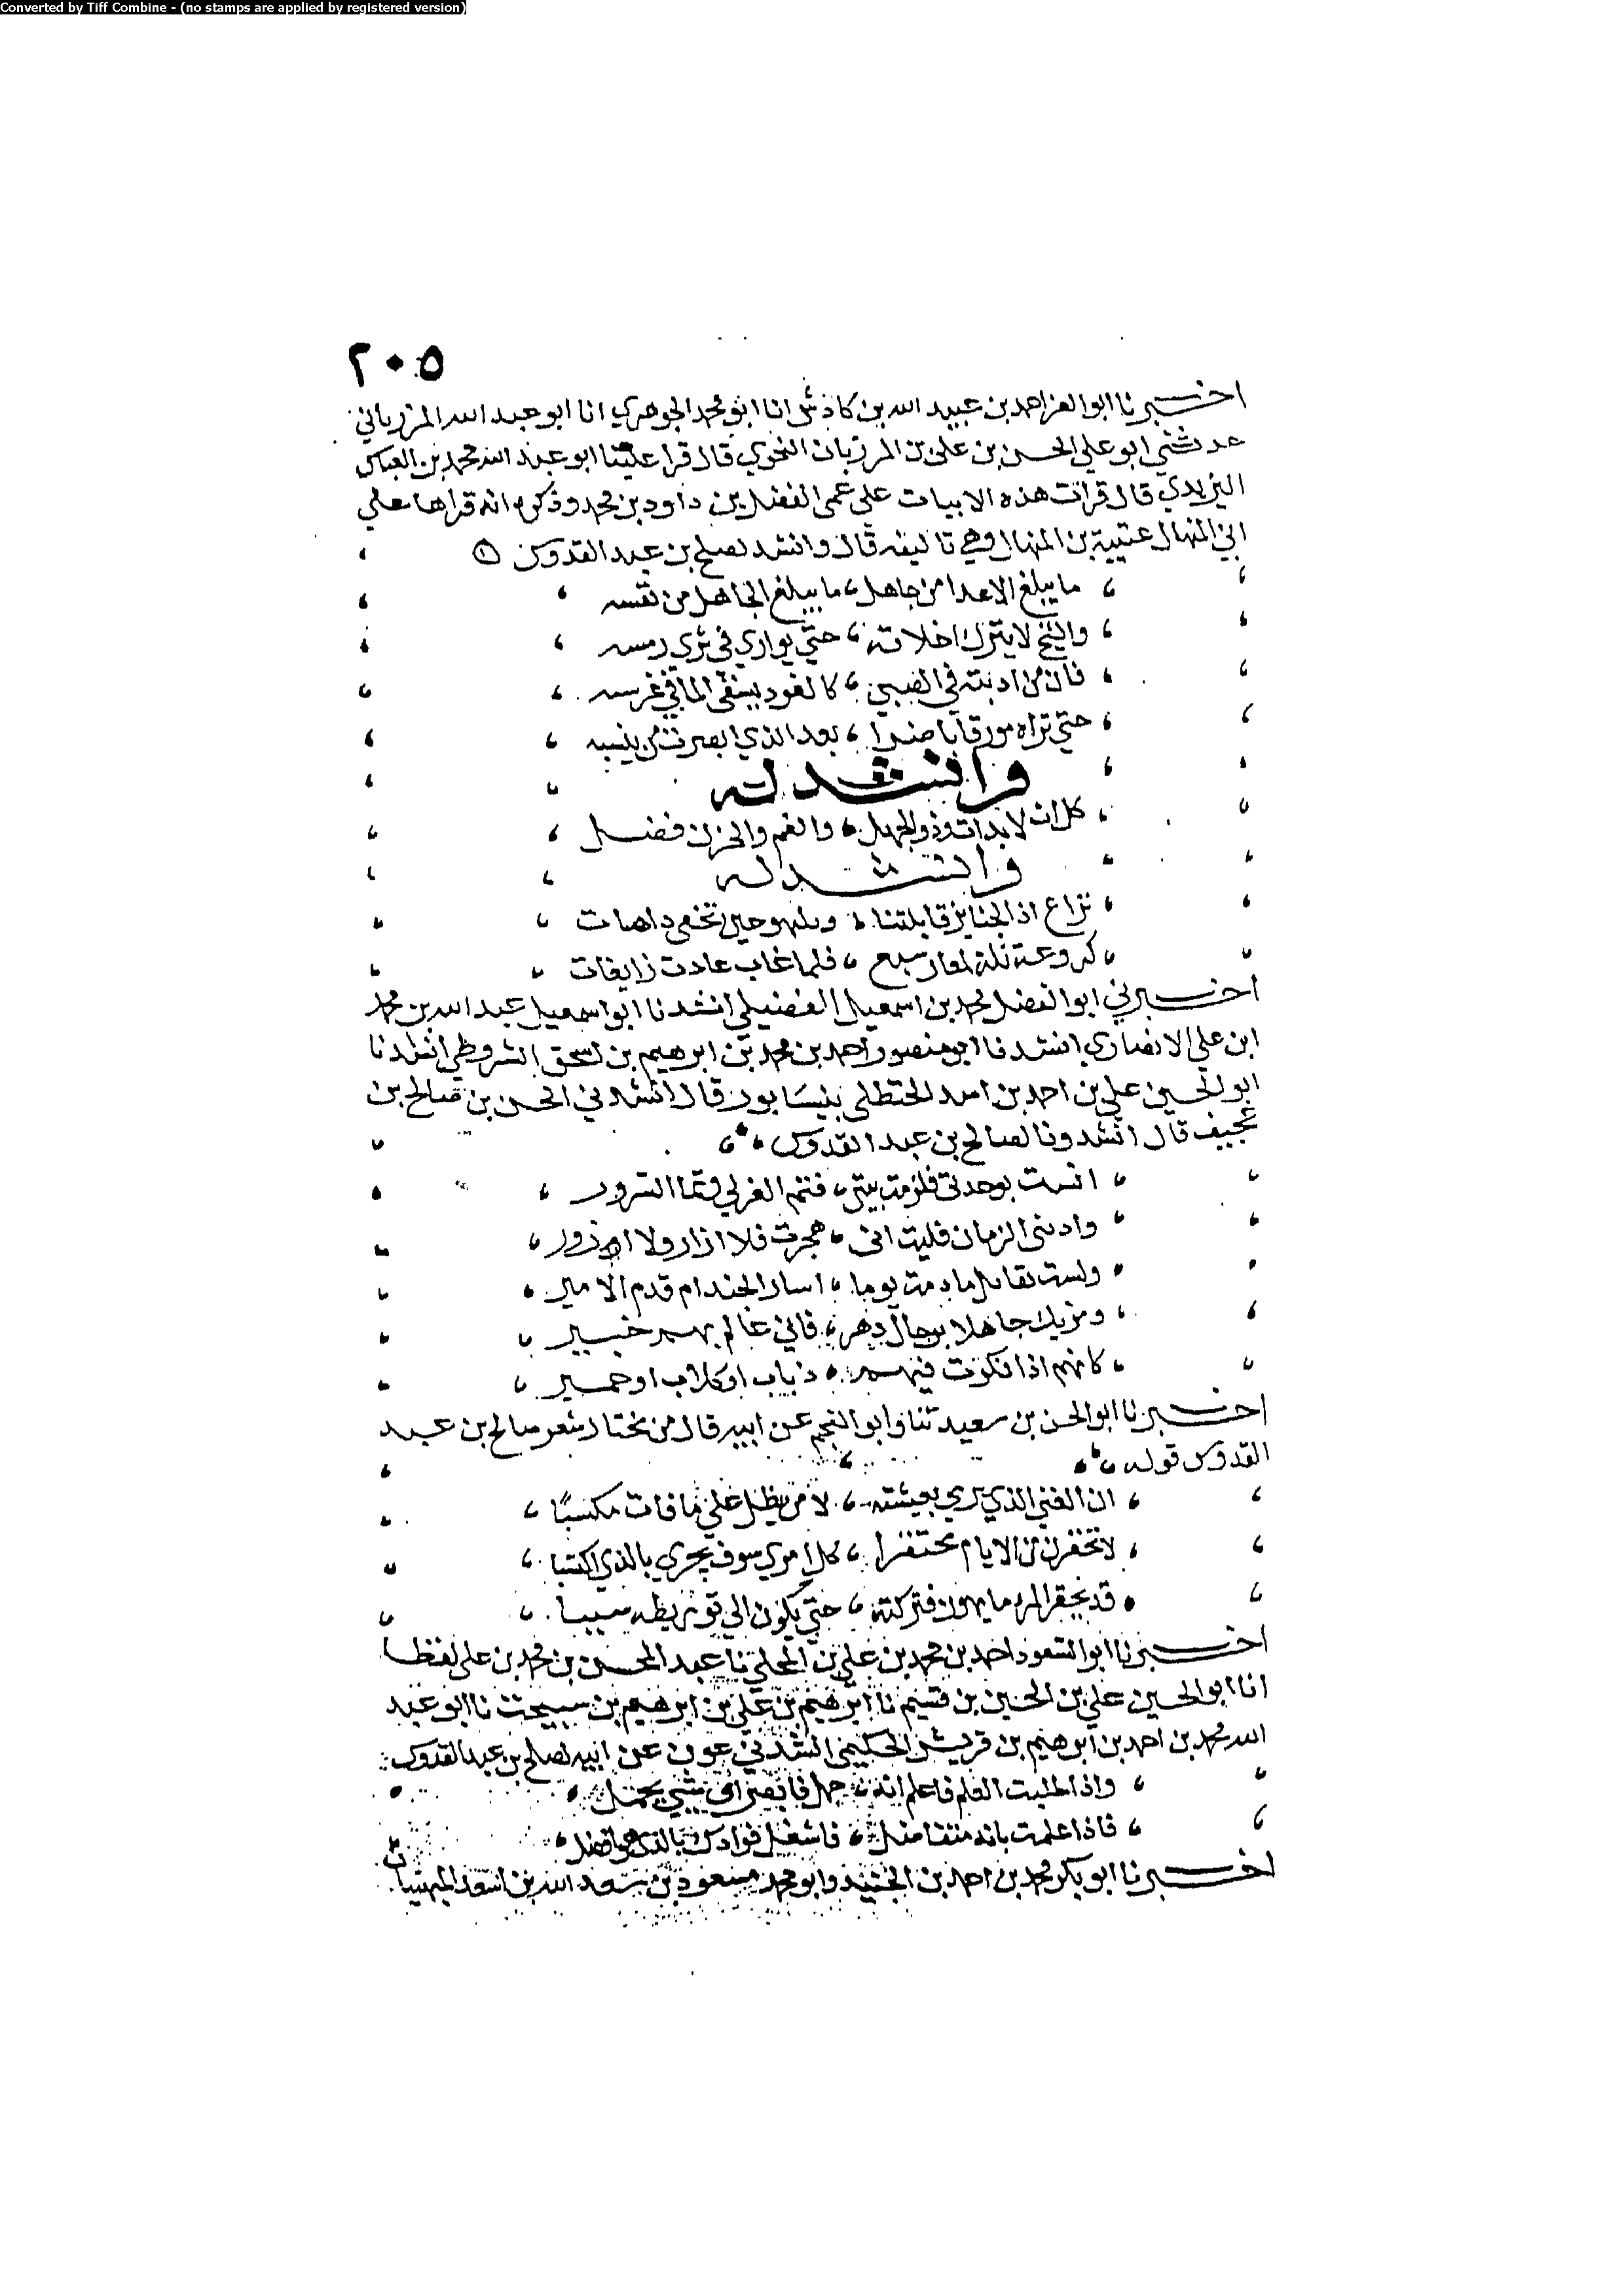 Converted by Tiff Combine - (no stamps are applied by registered version)
٢٠٥
اخبرنا ابو العز احمد بن عبيد الله بن كادش انا ابو محمد الجوهري انا ابو عبد الله المرزباني
حدثني ابو علي الحسن بن علي بن المرزبان النحوي قال قرا علينا ابو عبد الله محمد بن العباس
اليزيدي قال قرات هذه الابيات على عمي الفضل بن داود بن محمد وذكر انه قراها علي
ابي المنهال عتيبة بن المنهال وهي تاليفه قال وانشد لصلح بن عبد القدوس
ما يبلغ الاعدا من جاهل ، ما يبلغ الجاهل من نفسه
والشيخ لا يترك اخلاقه ، حتي يواري في ثري رمسه
فان من ادبته في الصبي ، كالعود يسقي الما في غرسه
حتي تراه مورقا ناضرا ، بعد الذي ابصرت من يبسه
وانشد له
كل ات لا بد ات وذو الجهل ، والغم والحزن فضل
وانشد له
نراع اذا الجنايز قابلتنا ، ونلهو حين تخفى ذاهبات
كروعة ثلة لمغار سبع ، فلما غاب عادت راتعات
اخبرني ابو الفضل محمد بن اسمعيل الفضيلي انشدنا ابو اسمعيل عبد الله بن محمد
ابن علي الانصاري انشدنا ابو منصور احمد بن محمد بن ابرهيم بن اسحق الشروطي انشدنا
ابو الحسين علي بن احمد بن اسد الحنظلي بنيسابور قال انشدني الحسن بن صالح بن
عجيف قال انشدونا لصالح بن عبد القدوس
انست بوحدتي فلزمت بيتي ، فتم العز لي ونما السرور
وادبني الزمان فليت اني ، هجرت فلا ازار ولا ازور
ولست بقايل ما دمت يوما ، اسار الجند ام قدم الامير
ومن يك جاهلا برجال دهر ، فاني عالم بهم خبير
كانهم اذا فكرت فيهم ، ذياب او كلاب او حمير
اخبرنا ابو الحسن بن سعيد ثنا وابو النجم عن ابيه قال من مختار شعر صالح بن عبد
القدوس قوله
ان الغني الذي يرضي بعيشته ، لا من يظل علي ما فات مكتئبا
لا تحقرن من الايام محتقرا ، كل امري سوف يجزي بالذي اكتسبا
قد يحقر المرء ما يهوي فيتركه ، حتي يكون الي توريطه سببا
اخبرنا ابو السعود احمد بن محمد بن علي بن المجلي نا عبد المحسن بن محمد بن علي لفظا
انا ابو الحسين علي بن الحسين بن قسيم نا ابرهيم بن علي بن ابرهيم بن سيبخت نا ابو عبد
الله محمد بن احمد بن ابرهيم بن قريش الحكيمي انشدني عون عن ابيه لصلح بن عبد القدوس
واذا طلبت العلم فاعلم انه ، حمل فابصر اي شي تحمل
فاذا علمت بانه متفاضل ، فاشغل فوادك بالذي هو افضل
اخبرنا ابو بكر محمد بن احمد بن الجنيد وابو محمد مسعود بن سعد الله بن اسعد الميهنيان